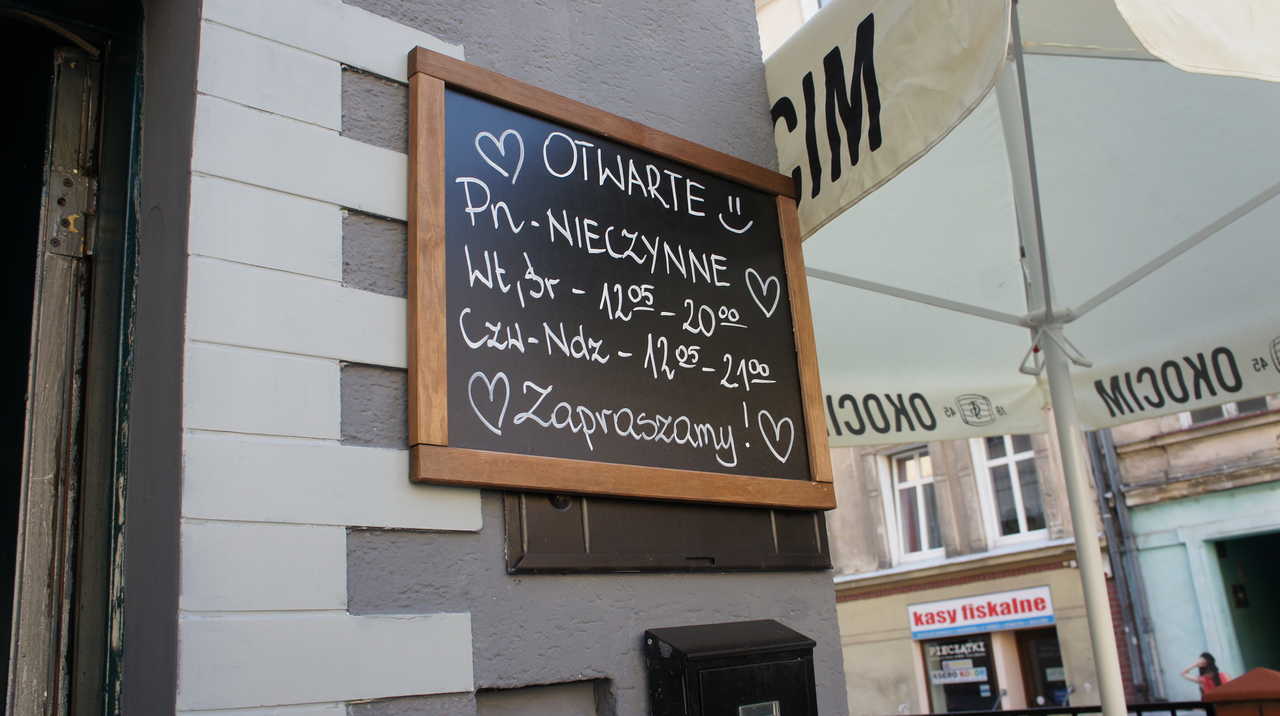 OTWARTE
Pn - NIECZYNNE
Wt, śr - 12⁰⁵ - 20⁰⁰
Czw - Ndz - 12⁰⁵ - 21⁰⁰
Zapraszamy!
CIM
OKOCIM 45
18 45 OKOCIM
kasy fiskalne
PIECZĄTKI
KSERO KOLOR